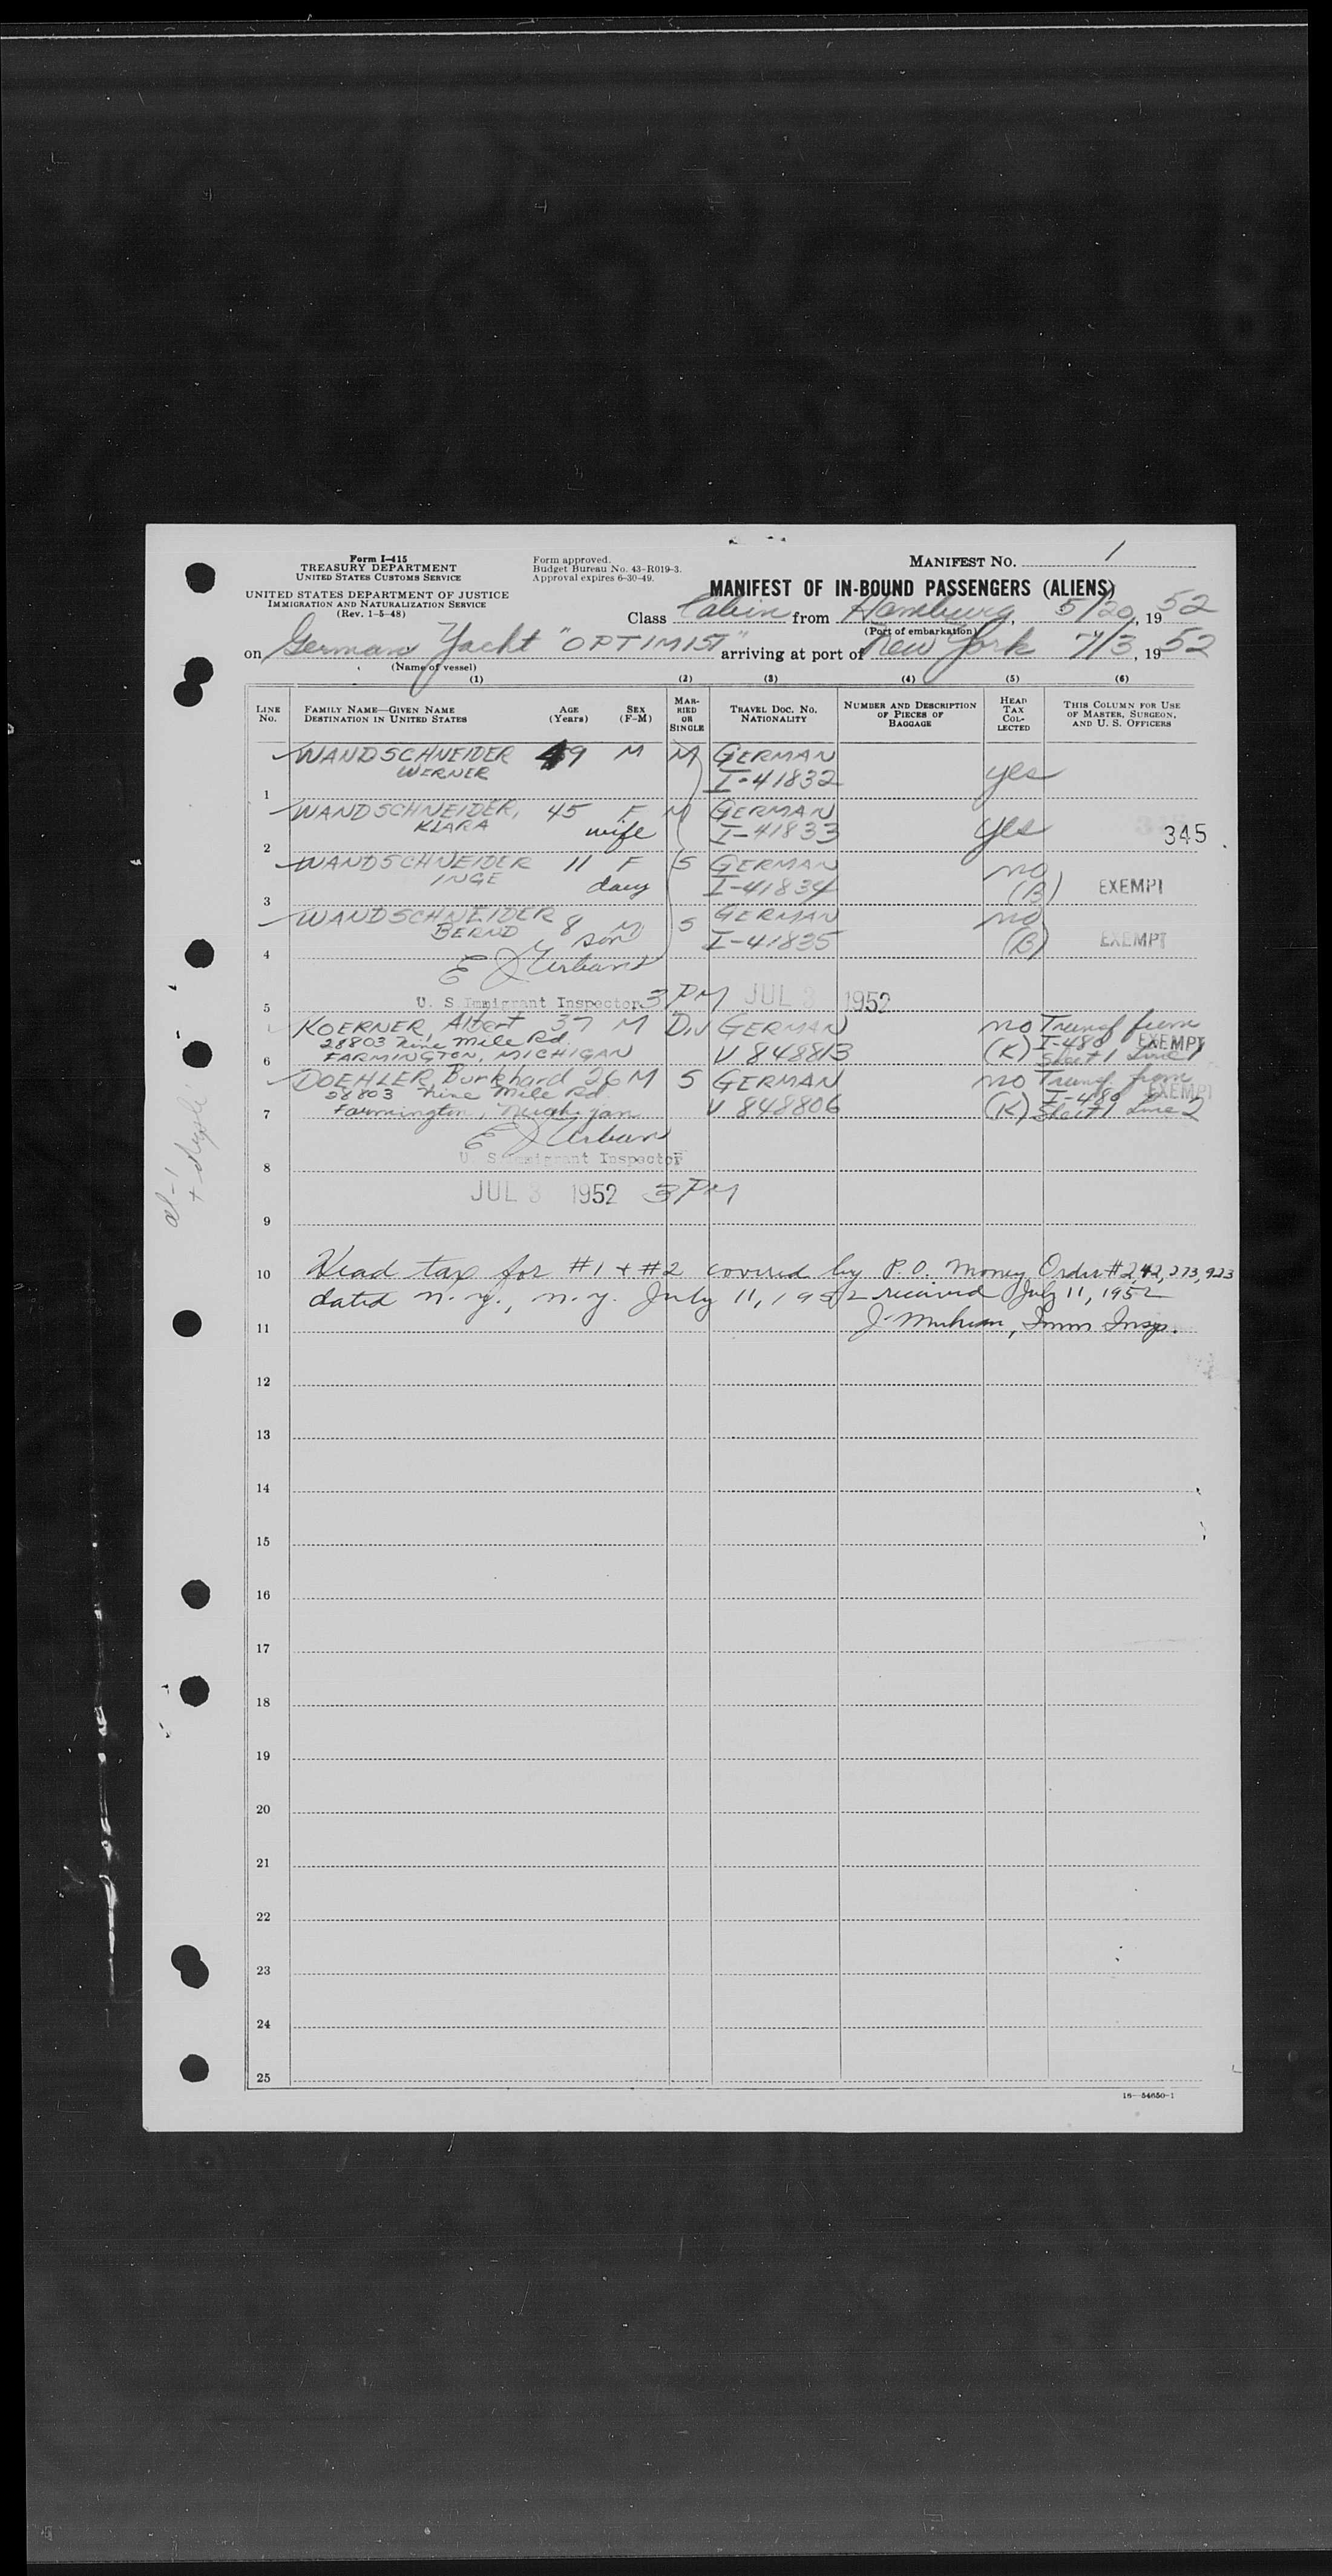 Form I-415
TREASURY DEPARTMENT
UNITED STATES CUSTOMS SERVICE
UNITED STATES DEPARTMENT OF JUSTICE
IMMIGRATION AND NATURALIZATION SERVICE
(Rev. 1-5-48)
Form approved.
Budget Bureau No. 43-R019-3.
Approval expires 6-30-49.
MANIFEST NO. 1
MANIFEST OF IN-BOUND PASSENGERS (ALIENS)
Class Cabin from Hamburg, 5/20, 1952
(Port of embarkation)
on German Yacht "OPTIMIST" arriving at port of New York 7/3, 1952
(Name of vessel)
(1) (2) (3) (4) (5) (6)
LINE NO. FAMILY NAME—GIVEN NAME DESTINATION IN UNITED STATES AGE (Years) SEX (F-M) MARRIED OR SINGLE TRAVEL DOC. NO. NATIONALITY NUMBER AND DESCRIPTION OF PIECES OF BAGGAGE HEAD TAX COLLECTED THIS COLUMN FOR USE OF MASTER, SURGEON, AND U. S. OFFICERS
WANDSCHNEIDER 49 M M GERMAN
WERNER I-41832 yes
1
WANDSCHNEIDER, 45 F M GERMAN
KLARA wife I-41833 yes 345
2
WANDSCHNEIDER 11 F S GERMAN no
INGE daug I-41834 (B) EXEMPT
3
WANDSCHNEIDER 8 M S GERMAN no
BERND son I-41835 (B) EXEMPT
4
E J Urban
U. S. Immigrant Inspector 3 PM JUL 3 1952
5
KOERNER, Albert 37 M Div GERMAN no Transf from
28803 Nine Mile Rd. I-480 EXEMPT
FARMINGTON, MICHIGAN V 848813 (K) Sheet 1 Line 1
6
DOEHLER, Burkhard 26 M S GERMAN no Transf. from
28803 Nine Mile Rd I-480 EXEMPT
Farmington, Michigan V 848806 (K) Sheet 1 Line 2
7
E J Urban
U. S. Immigrant Inspector
8
JUL 3 1952 3 PM
9
10 Head tax for #1 + #2 covered by P.O. Money Order #2,42,273,923
dated N.Y., N.Y. July 11, 1952 received July 11, 1952
11 Imm Insp.
12
13
14
15
16
17
18
19
20
21
22
23
24
25
16—54650-1